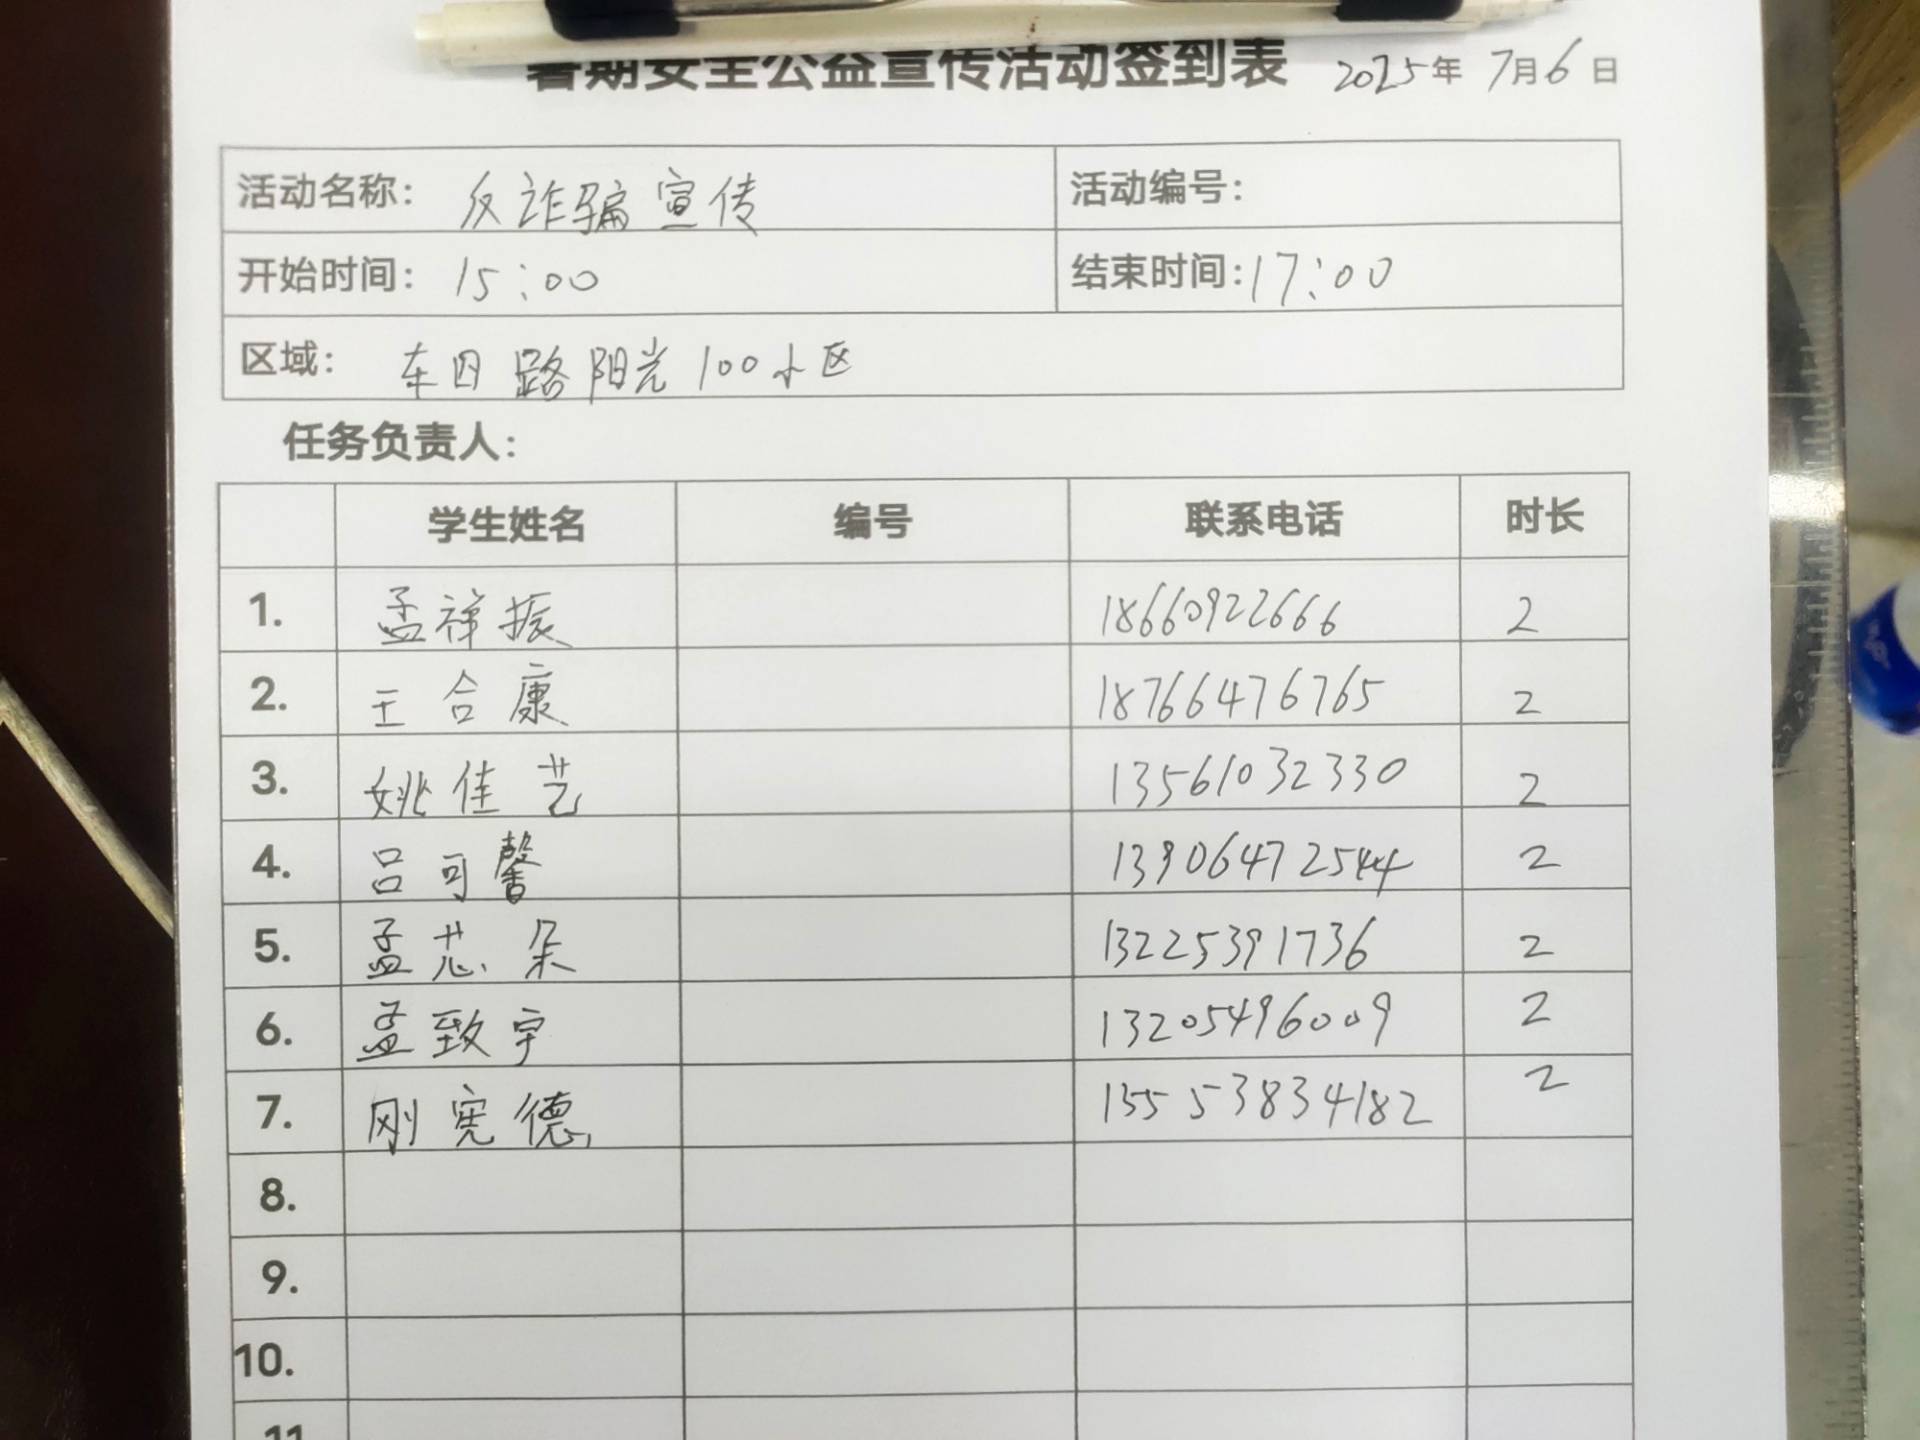 暑期安全公益宣传活动签到表 2025年7月6日
活动名称：反诈骗宣传 活动编号：
开始时间：15:00 结束时间：17:00
区域：车四路阳光100小区
任务负责人：
学生姓名 编号 联系电话 时长
1. 孟祥振 18660922666 2
2. 王合康 18766476765 2
3. 姚佳艺 13561032330 2
4. 吕可馨 13906472544 2
5. 孟芯朵 13225391736 2
6. 孟致宇 13205496009 2
7. 刚宪德 15553834182 2
8.
9.
10.
11